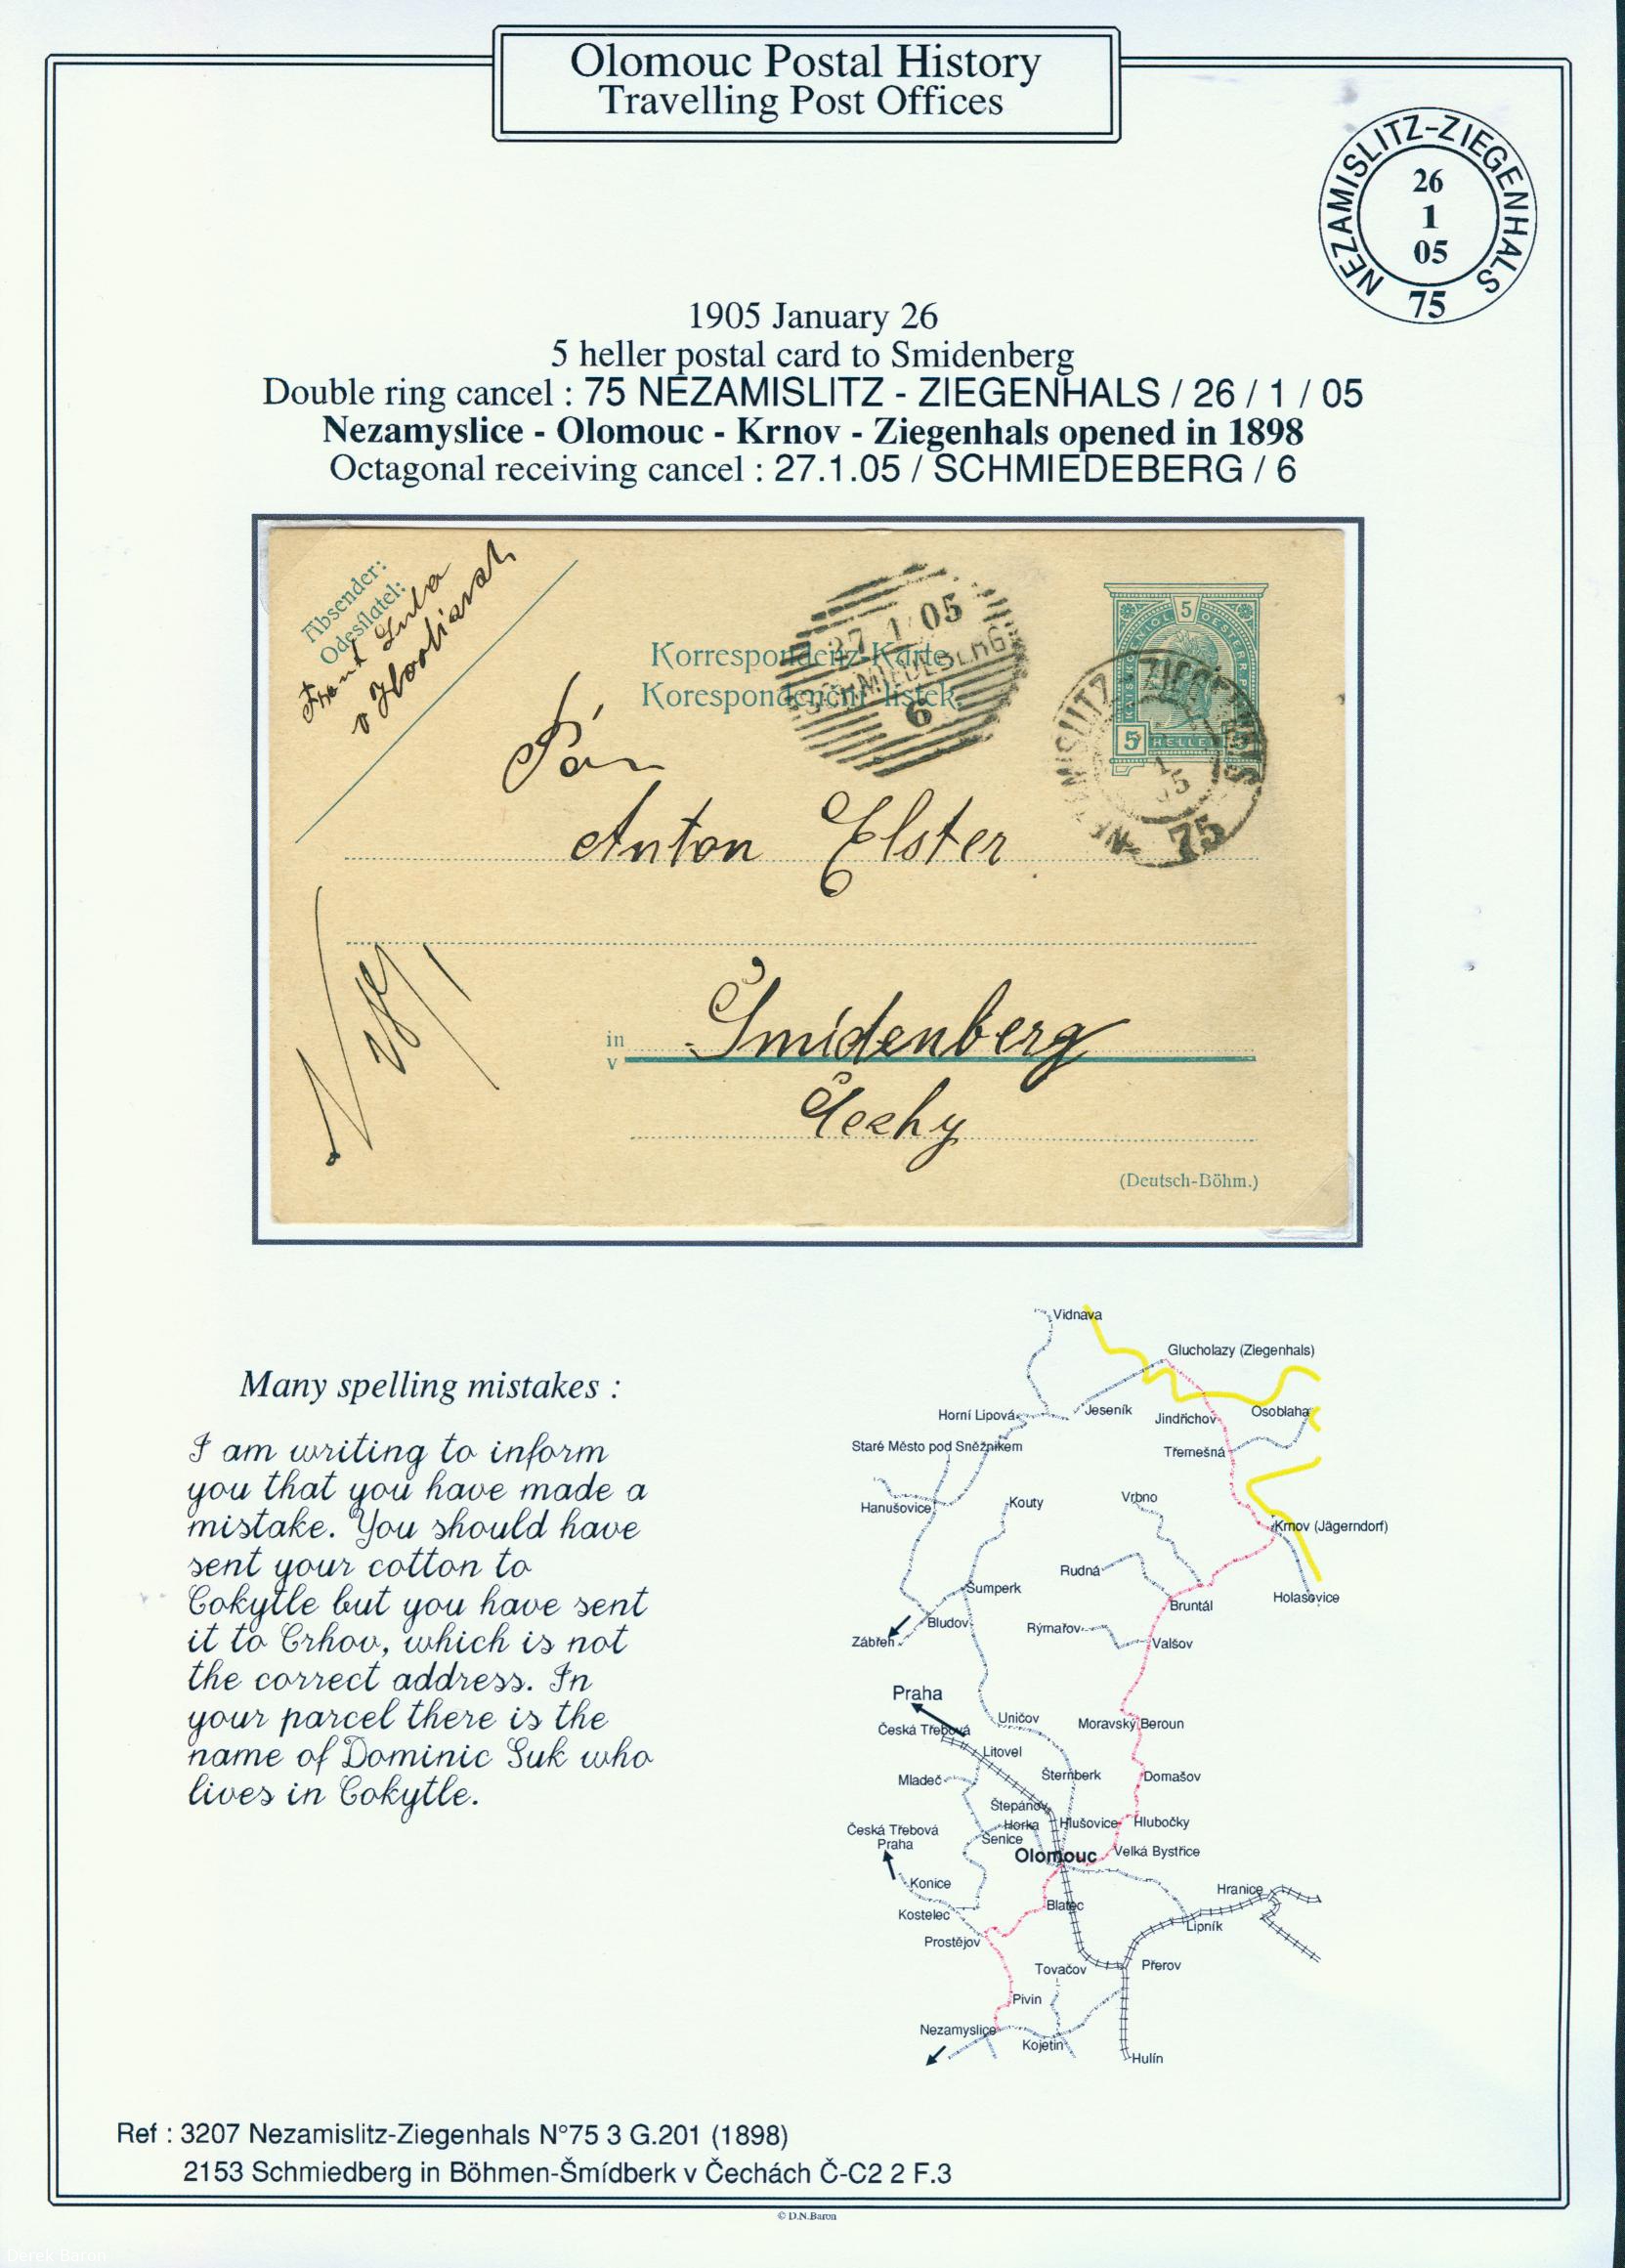 Olomouc Postal History
Travelling Post Offices
NEZAMISLITZ-ZIEGENHALS
26
1
05
75
1905 January 26
5 heller postal card to Smidenberg
Double ring cancel : 75 NEZAMISLITZ - ZIEGENHALS / 26 / 1 / 05
Nezamyslice - Olomouc - Krnov - Ziegenhals opened in 1898
Octagonal receiving cancel : 27.1.05 / SCHMIEDEBERG / 6
Absender:
Odesílatel:
Korrespondenz-Karte.
Korespondenční lístek.
27 1 05
SCHMIEDEBERG
6
5
KAIS. KÖNIGL. OESTERR. P
5 HELLER
NEZAMISLITZ - ZIEGENHALS
75
Pán
Anton Elster
in
v
Smidenberg
Čechy
(Deutsch-Böhm.)
Many spelling mistakes :
I am writing to inform
you that you have made a
mistake. You should have
sent your cotton to
Cokytle but you have sent
it to Crhov, which is not
the correct address. In
your parcel there is the
name of Dominic Suk who
lives in Cokytle.
Vidnava
Glucholazy (Ziegenhals)
Jeseník
Horní Lipová
Jindřichov
Osoblaha
Staré Město pod Sněžnikem
Třemešná
Hanušovice
Kouty
Vrbno
Krnov (Jägerndorf)
Rudná
Šumperk
Holasovice
Bruntál
Bludov
Rýmařov
Zábřeh
Valšov
Praha
Uničov
Moravský Beroun
Česká Třebová
Litovel
Mladeč
Šternberk
Domašov
Štepánov
Horka
Hlušovice
Hlubočky
Česká Třebová
Praha
Senice
Olomouc
Velká Bystřice
Konice
Hranice
Blatec
Kostelec
Lipník
Prostějov
Tovačov
Přerov
Pivin
Nezamyslice
Kojetin
Hulín
Ref : 3207 Nezamislitz-Ziegenhals N°75 3 G.201 (1898)
2153 Schmiedberg in Böhmen-Šmídberk v Čechách Č-C2 2 F.3
© D.N.Baron
Derek Baron